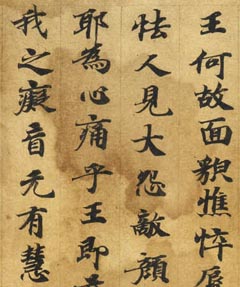 王何故面貌憔悴
怯人見大怨敵顏
耶為心痛乎王即
我之癡盲无有慧